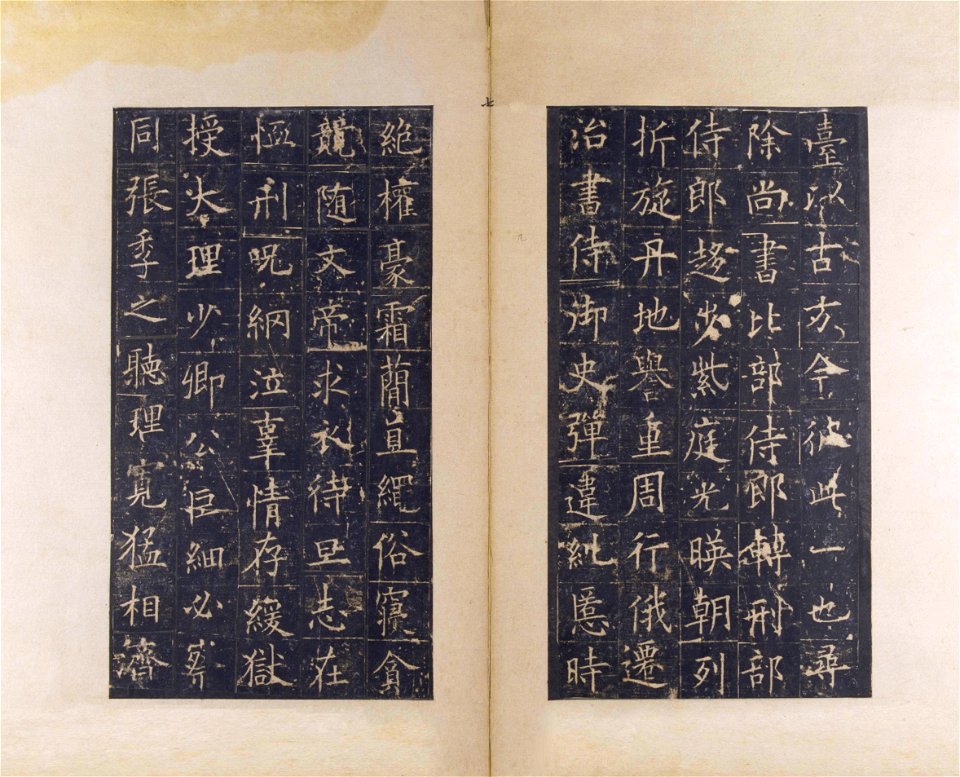 臺以古方今彼此一也尋
除尚書比部侍郎轉刑部
侍郎趍步紫庭光暎朝列
折旋丹地譽重周行俄遷
治書侍御史彈違糺慝時
絶權豪霜簡直繩俗寢貪
競隨文帝求衣待旦志在
恤刑咒網泣辜情存緩獄
授大理少卿公巨細必察
同張季之聽理寬猛相濟